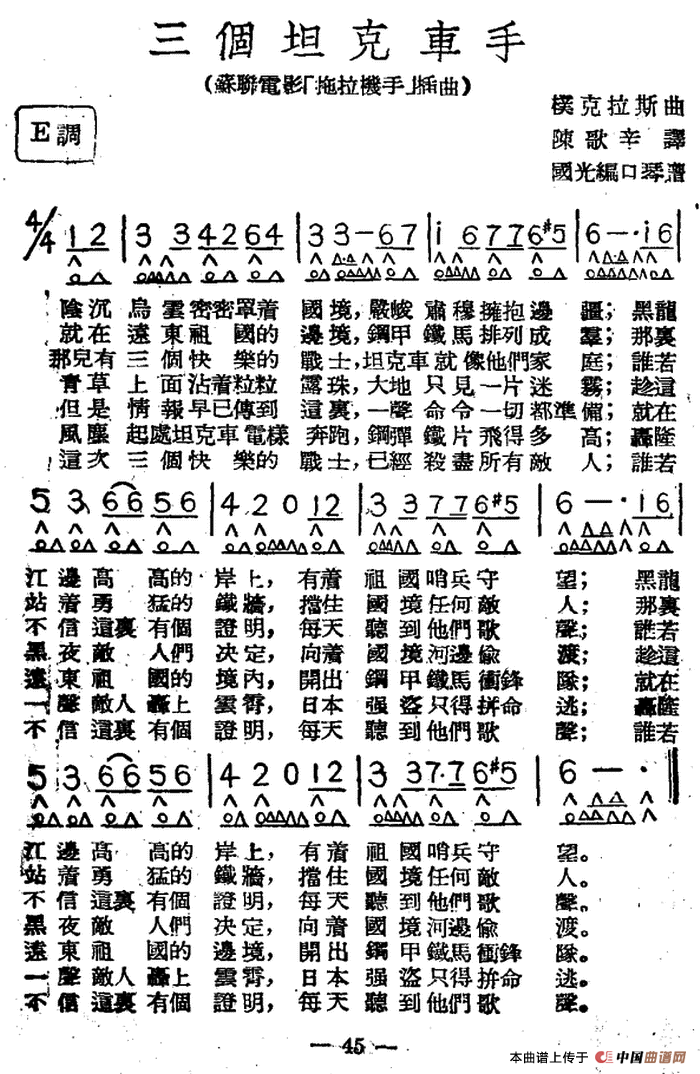 三個坦克車手
(蘇聯電影「拖拉機手」插曲)
E調
樸克拉斯曲
陳歌辛譯
國光編口琴譜
4/4 1 2 | 3 3 4 2 6 4 | 3 3 — 6 7 | i 6 7 7 6 #5 | 6 — · i 6
陰沉烏雲密密罩着國境,嚴峻肅穆擁抱邊疆;黑龍
就在遠東祖國的邊境,鋼甲鐵馬排列成羣;那裏
那兒有三個快樂的戰士,坦克車就像他們家庭;誰若
青草上面沾着粒粒露珠,大地只見一片迷霧;趁這
但是情報早已傳到這裏,一聲命令一切都準備;就在
風塵起處坦克車電樣奔跑,鋼彈鐵片飛得多高;轟隆
這次三個快樂的戰士,已經殺盡所有敵人;誰若
5 3 · 6 6 5 6 | 4 2 0 1 2 | 3 3 7 7 6 #5 | 6 — · i 6
江邊高高的岸上,有着祖國哨兵守望;黑龍
站着勇猛的鐵牆,擋住國境任何敵人;那裏
不信這裏有個證明,每天聽到他們歌聲;誰若
黑夜敵人們決定,向着國境河邊偷渡;趁這
遠東祖國的境內,開出鋼甲鐵馬衝鋒隊;就在
一聲敵人轟上雲霄,日本强盜只得拼命逃;轟隆
不信這裏有個證明,每天聽到他們歌聲;誰若
5 3 · 6 6 5 6 | 4 2 0 1 2 | 3 3 7 · 7 6 #5 | 6 — ·
江邊高高的岸上,有着祖國哨兵守望。
站着勇猛的鐵牆,擋住國境任何敵人。
不信這裏有個證明,每天聽到他們歌聲。
黑夜敵人們決定,向着國境河邊偷渡。
遠東祖國的邊境,開出鋼甲鐵馬衝鋒隊。
一聲敵人轟上雲霄,日本强盜只得拼命逃。
不信這裏有個證明,每天聽到他們歌聲。
— 45 —
本曲谱上传于 中国曲谱网